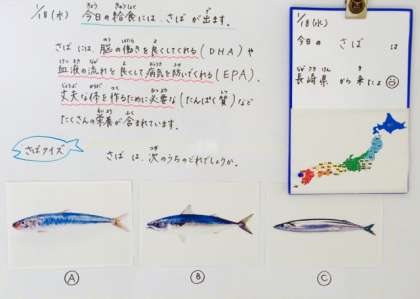 1/18(水) 今日の給食には、さばが出ます。
さばには、脳の働きを良くしてくれる(DHA)や
血液の流れを良くして病気を防いでくれる(EPA)、
丈夫な体を作るために必要な(たんぱく質)など
たくさんの栄養が含まれています。
さばクイズ
さばは、次のうちのどれでしょうか。
Ⓐ
Ⓑ
Ⓒ
1/18(水)
今日の さば は
長崎県 から来たよ